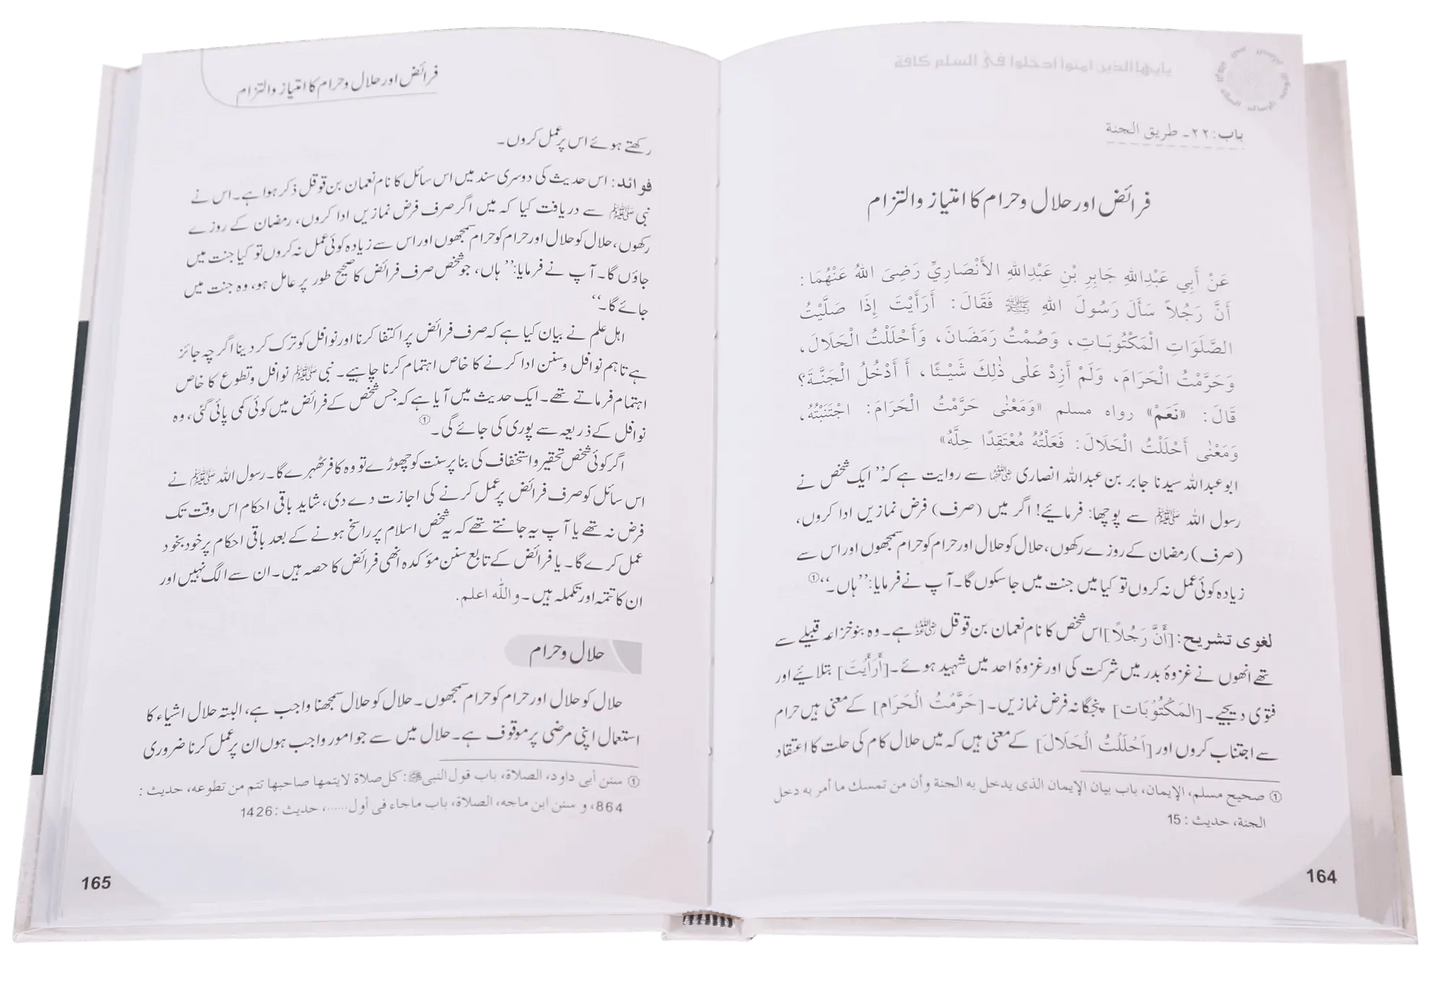 يايها الذين امنوا ادخلوا فى السلم كافة
باب: ۲۲ ـ طريق الجنة
فرائض اور حلال و حرام کا امتیاز و التزام
عَنْ أَبِي عَبْدِاللهِ جَابِرِ بْنِ عَبْدِاللهِ الأَنْصَارِيِّ رَضِىَ اللهُ عَنْهُمَا:
أَنَّ رَجُلاً سَأَلَ رَسُولَ اللهِ ﷺ فَقَالَ: أَرَأَيْتَ إِذَا صَلَّيْتُ
الصَّلَوَاتِ الْمَكْتُوبَاتِ، وَصُمْتُ رَمَضَانَ، وَأَحْلَلْتُ الْحَلَالَ،
وَحَرَّمْتُ الْحَرَامَ، وَلَمْ أَزِدْ عَلٰى ذٰلِكَ شَيْئًا، أَ أَدْخُلُ الْجَنَّةَ؟
قَالَ: «نَعَمْ» رواه مسلم «وَمَعْنٰى حَرَّمْتُ الْحَرَامَ: اجْتَنَبْتُهُ،
وَمَعْنٰى أَحْلَلْتُ الْحَلَالَ: فَعَلْتُهُ مُعْتَقِدًا حِلَّهُ»
ابوعبداللہ سیدنا جابر بن عبداللہ انصاری رضی اللہ عنہما سے روایت ہے کہ ’’ایک شخص نے
رسول اللہ ﷺ سے پوچھا: فرمائیے! اگر میں (صرف) فرض نمازیں ادا کروں،
(صرف) رمضان کے روزے رکھوں، حلال کو حلال اور حرام کو حرام سمجھوں اور اس سے
زیادہ کوئی عمل نہ کروں تو کیا میں جنت میں جا سکوں گا۔ آپ نے فرمایا: ’’ہاں۔‘‘①
لغوی تشریح: [أَنَّ رَجُلًا] اس شخص کا نام نعمان بن قوقل رضی اللہ عنہ ہے۔ وہ بنو خزاعہ قبیلے سے
تھے انھوں نے غزوۂ بدر میں شرکت کی اور غزوۂ احد میں شہید ہوئے۔ [أَرَأَيْتَ] بتلائیے اور
فتوی دیجیے۔ [الْمَكْتُوبَات] پنجگانہ فرض نمازیں۔ [حَرَّمْتُ الْحَرَام] کے معنی ہیں حرام
سے اجتناب کروں اور [أَحْلَلْتُ الْحَلَالَ] کے معنی ہیں کہ میں حلال کام کی حلت کا اعتقاد
① صحيح مسلم، الإيمان، باب بيان الإيمان الذى يدخل به الجنة وأن من تمسك ما أمر به دخل
الجنة، حديث: 15
164
فرائض اور حلال و حرام کا امتیاز و التزام
رکھتے ہوئے اس پر عمل کروں۔
فوائد: اس حدیث کی دوسری سند میں اس سائل کا نام نعمان بن قوقل ذکر ہوا ہے۔ اس نے
نبی ﷺ سے دریافت کیا کہ میں اگر صرف فرض نمازیں ادا کروں، رمضان کے روزے
رکھوں، حلال کو حلال اور حرام کو حرام سمجھوں اور اس سے زیادہ کوئی عمل نہ کروں تو کیا جنت میں
جاؤں گا۔ آپ نے فرمایا: ’’ہاں، جو شخص صرف فرائض کا صحیح طور پر عامل ہو، وہ جنت میں
جائے گا۔‘‘
اہل علم نے بیان کیا ہے کہ صرف فرائض پر اکتفا کرنا اور نوافل کو ترک کر دینا اگرچہ جائز
ہے تاہم نوافل و سنن ادا کرنے کا خاص اہتمام کرنا چاہیے۔ نبی ﷺ نوافل و تطوع کا خاص
اہتمام فرماتے تھے۔ ایک حدیث میں آیا ہے کہ جس شخص کے فرائض میں کوئی کمی پائی گئی، وہ
نوافل کے ذریعہ سے پوری کی جائے گی۔①
اگر کوئی شخص تحقیر و استخفاف کی بنا پر سنت کو چھوڑے تو وہ کافر ٹھہرے گا۔ رسول اللہ ﷺ نے
اس سائل کو صرف فرائض پر عمل کرنے کی اجازت دے دی، شاید باقی احکام اس وقت تک
فرض نہ تھے یا آپ یہ جانتے تھے کہ یہ شخص اسلام پر راسخ ہونے کے بعد باقی احکام پر خود بخود
عمل کرے گا۔ یا فرائض کے تابع سنن مؤکدہ انھی فرائض کا حصہ ہیں۔ ان سے الگ نہیں اور
ان کا تتمہ اور تکملہ ہیں۔ واللّٰه اعلم.
حلال و حرام
حلال کو حلال اور حرام کو حرام سمجھوں۔ حلال کو حلال سمجھنا واجب ہے، البتہ حلال اشیاء کا
استعمال اپنی مرضی پر موقوف ہے۔ حلال میں سے جو امور واجب ہوں ان پر عمل کرنا ضروری
① سنن أبى داود، الصلاة، باب قول النبيﷺ: كل صلاة لايتمها صاحبها تتم من تطوعه، حديث:
864، و سنن ابن ماجه، الصلاة، باب ماجاء فى أول......، حديث: 1426
165